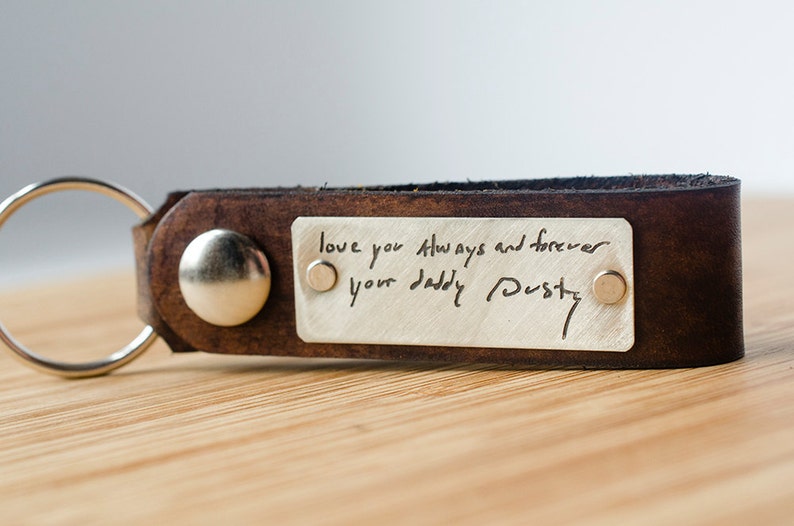 love you Always and forever
your daddy Dusty